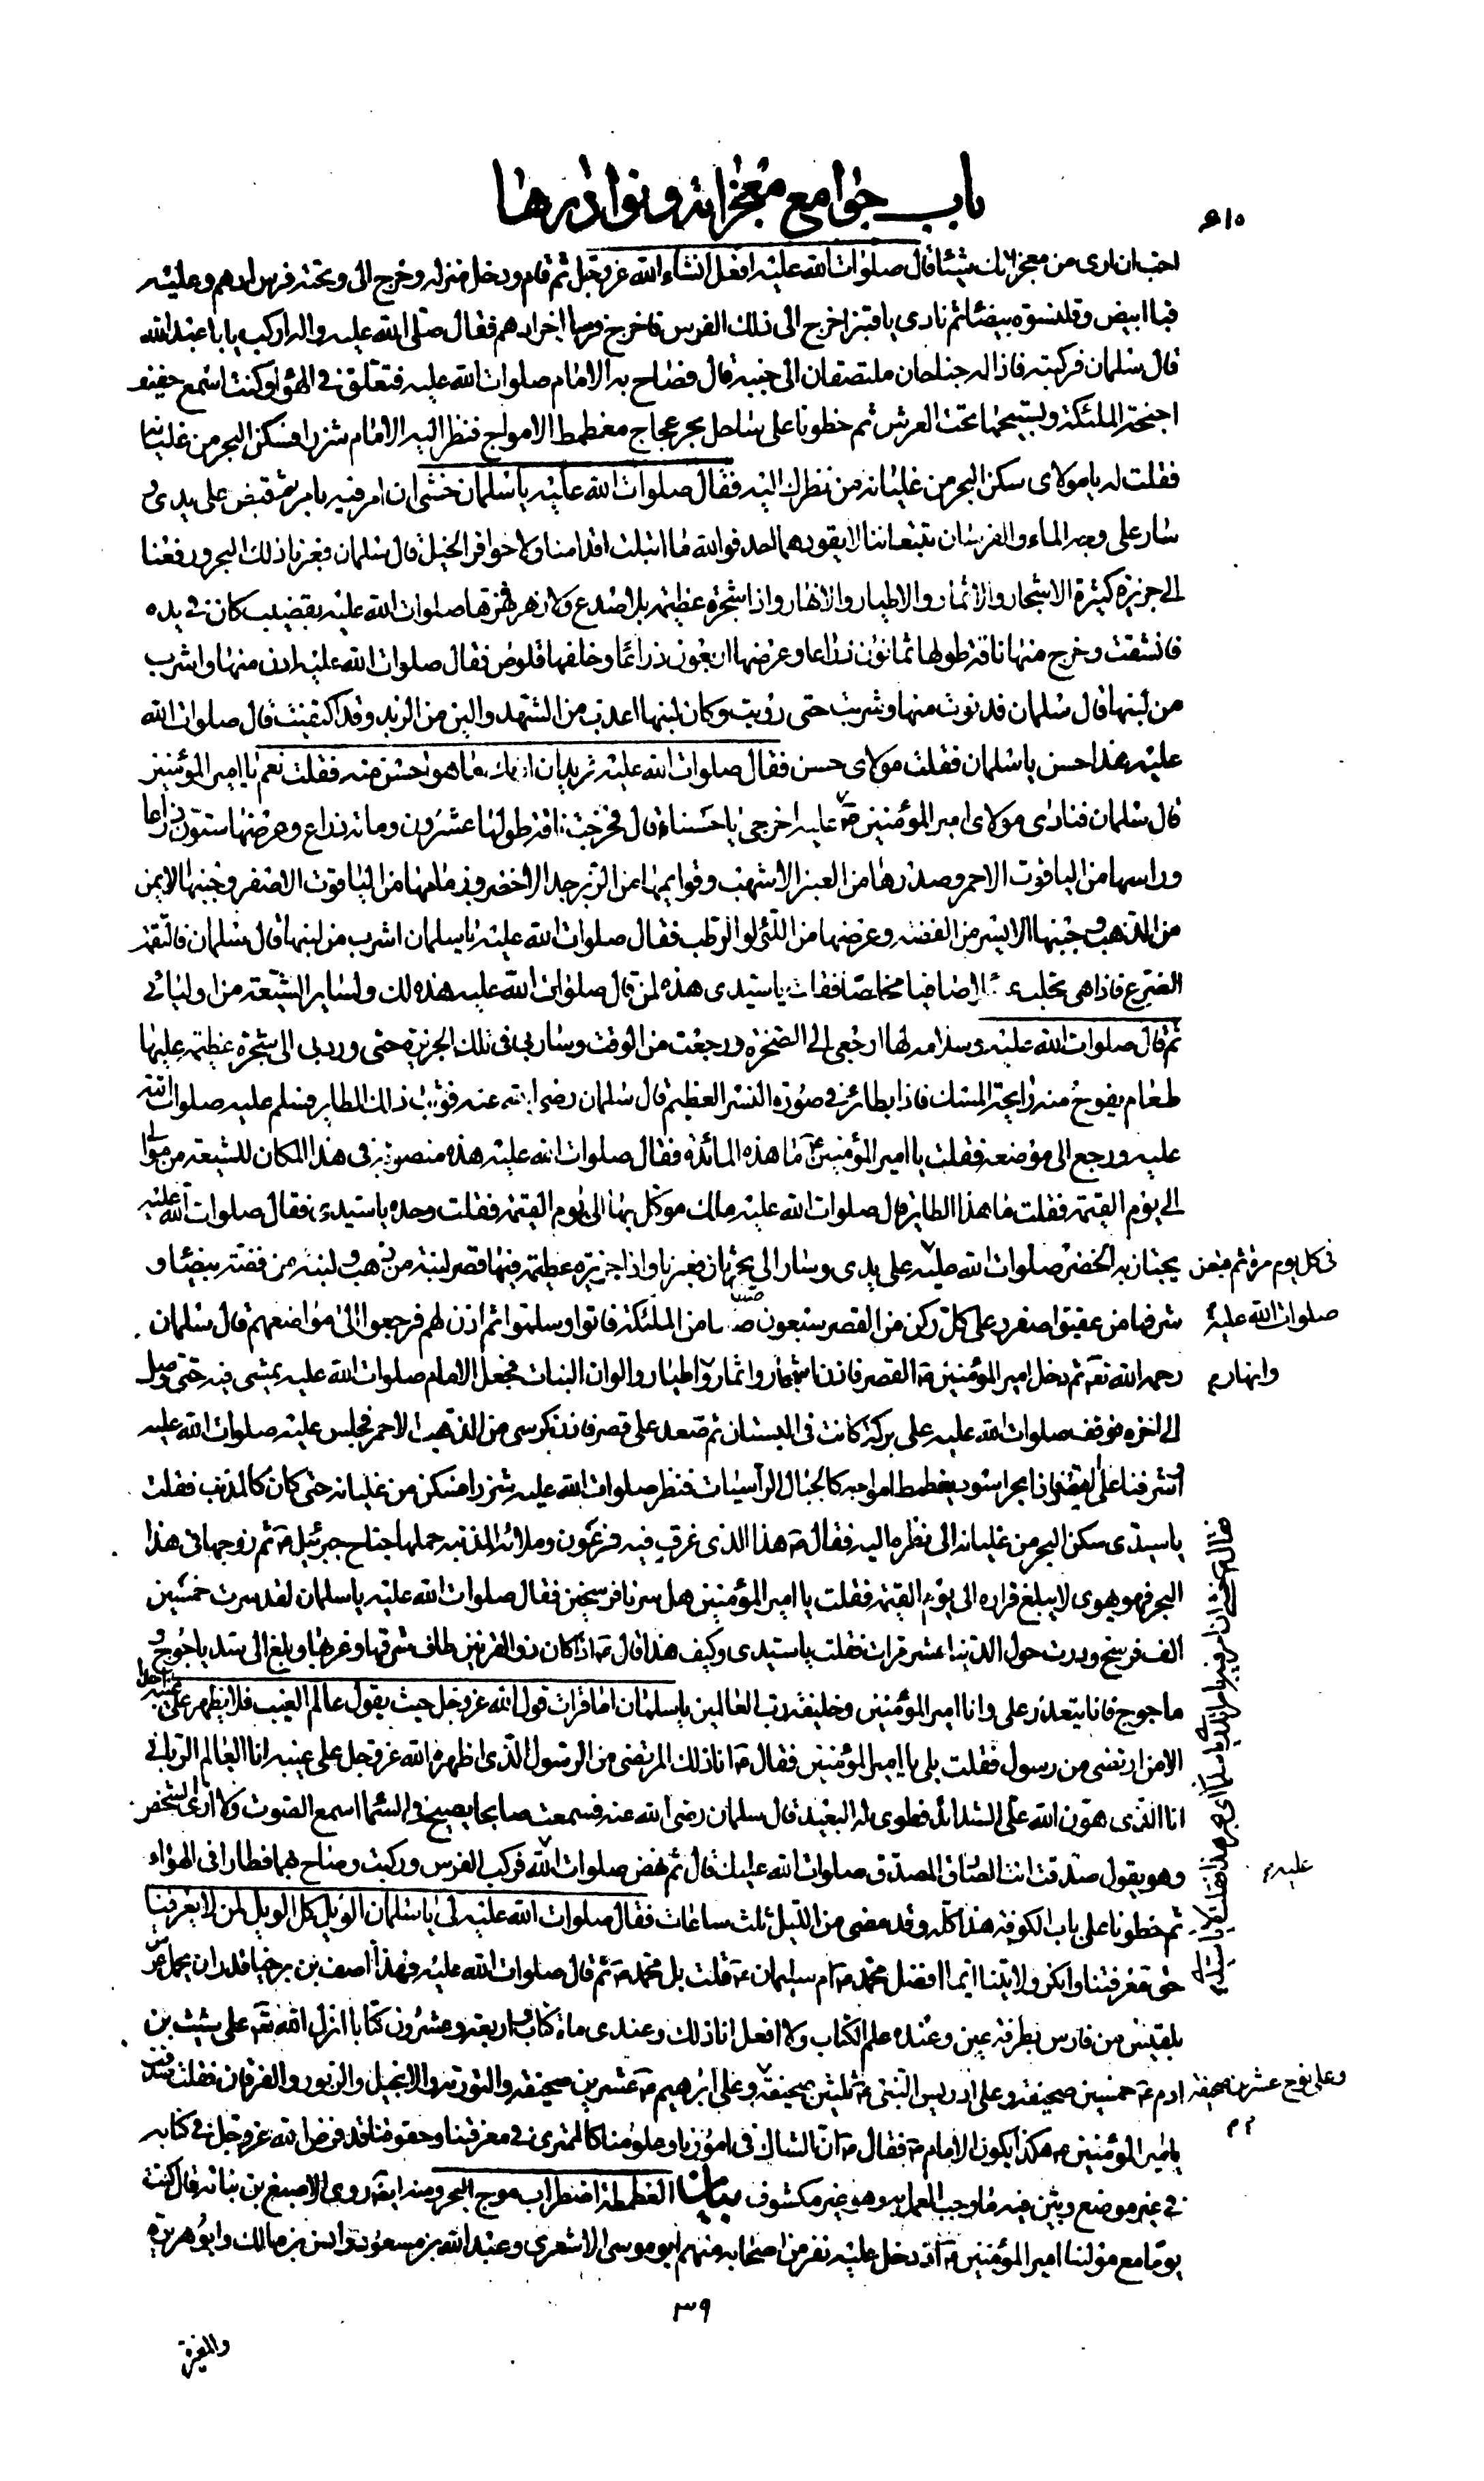 باب جوامع معجزاته و نوادرها
٥١٠
احب ان ارى من معجزاتك شيئا قال صلوات الله عليه افعل انشاء الله عز وجل ثم قام ودخل منزله وخرج الى وتحته فرس ادهم وعليه
قبا ابيض وقلنسوه بيضاء ثم نادى يا قنبر اخرج الى ذلك الفرس فاخرج فرسا اخر ادهم فقال صلى الله عليه واله اركب يا با عبد الله
قال سلمان فركبته فاذا له جناحان ملتصقان الى جنبيه قال فصاح به الامام صلوات الله عليه فتعلق في الهواء وكنت اسمع حفيف
اجنحة الملئكة وتسبيحها تحت العرش ثم خطونا على ساحل بحر عجاج مغطمط الامواج فنظر اليه الامام شزرا فسكن البحر من غليانه
فقلت له يا مولاى سكن البحر من غليانه من نظرك اليه فقال صلوات الله عليه يا سلمان خشى ان امر فيه بامر ثم قبض على يدى و
سار على وجه الماء والفرسان تتبعاننا لا يقودهما احد فوالله ما ابتلت اقدامنا ولا حوافر الخيل قال سلمان فعبرنا ذلك البحر ورفعنا
الى جزيرة كثيرة الاشجار والاثمار والاطيار والانهار واذا شجرة عظيمة بلا صدع ولا زهر فهزها صلوات الله عليه بقضيب كان في يده
فانشقت وخرج منها ناقة طولها ثمانون ذراعا وعرضها اربعون ذراعا وخلفها قلوص فقال صلوات الله عليه ادن منها واشرب
من لبنها قال سلمان فدنوت منها وشربت حتى رويت وكان لبنها اعذب من الشهد والين من الزبد وقد اكتفيت قال صلوات الله
عليه هذا حسن يا سلمان فقلت مولاى حسن فقال صلوات الله عليه تريد ان اريك ما هو احسن منه فقلت نعم يا امير المؤمنين
قال سلمان فنادى مولاى امير المؤمنين ص عليه اخرجى يا حسناء قال فخرجت ناقة طولها عشرون ومائة ذراع وعرضها ستون ذراعا
وراسها من الياقوت الاحمر وصدرها من العنبر الاشهب وقوايمها من الزبرجد الاخضر وزمامها من الياقوت الاصفر وجنبها الايمن
من الذهب وجنبها الايسر من الفضه وعرضها من اللؤلؤ الرطب فقال صلوات الله عليه يا سلمان اشرب من لبنها قال سلمان فالتقمت
الضرع فاذا هى تحلب عسلا صافيا مخلصا فقلت يا سيدى هذه لمن قال صلوات الله عليه هذه لك ولساير الشيعة من اوليائى
ثم قال صلوات الله عليه وسلامه لها ارجعى الى الصخرة ورجعت من الوقت وساربى في تلك الجزيرة حتى ورد بى الى شجرة عظيمة عليها
طعام يفوح منه رايحة المسك فاذا بطائر في صورة النسر العظيم قال سلمان رضى الله عنه فوثب ذلك الطاير فسلم عليه صلوات الله
عليه ورجع الى موضعه فقلت يا امير المؤمنين ع ما هذه المائدة فقال صلوات الله عليه هذه منصوبة في هذا المكان للشيعة من موالى
الى يوم القيمة فقلت ما هذا الطاير قال صلوات الله عليه ملك موكل بها الى يوم القيمة فقلت وحده يا سيدى فقال صلوات الله عليه
يجتاز به الخضر صلوات الله عليه على يدى وسار الى بحر ثان فعبرنا واذا جزيرة عظيمة فيها قصر لبنة من ذهب ولبنة من فضة بيضاء و
في كل يوم مرة ثم قبض
شرفها من عقيق اصفر وعلى كل ركن من القصر سبعون صفا من الملئكة فاتوا وسلموا ثم اذن لهم فرجعوا الى مواضعهم قال سلمان
صلوات الله عليه
رحمه الله تعالى ثم دخل امير المؤمنين ع القصر فاذا اشجار واثمار واطيار والوان النبات فجعل الامام صلوات الله عليه يمشى فيه حتى وصل
وانهار م
الى اخره فوقف صلوات الله عليه على بركة كانت في البستان ثم صعد على قصر فاذا كرسى من الذهب الاحمر فجلس عليه صلوات الله عليه
واشرفنا على القصر فاذا بحر اسود يغطمط امواجه كالجبال الراسيات فنظر صلوات الله عليه شزرا فسكن من غليانه حتى كان كالمذنب فقلت
يا سيدى سكن البحر من غليانه الى نظرها اليه فقال ع هذا الذى غرق فيه فرعون وملائه المذنبه حملها جناح جبرئيل ع ثم زوجها في هذا
البحر فهو يهوى لا يبلغ قراره الى يوم القيمة فقلت يا امير المؤمنين هل سرنا فرسخين فقال صلوات الله عليه يا سلمان لقد سرت خمسين
الف فرسخ ودرت حول الدنيا عشر مرات فقلت يا سيدى وكيف هذا قال ع اذا كان ذو القرنين طاف شرقها وغربها وبلغ الى سد ياجوج و
ماجوج فانا يتعذر على وانا امير المؤمنين وخليفة رب العالمين يا سلمان اما قرات قول الله عز وجل حيث يقول عالم الغيب فلا يظهر على غيبه احدا
الا من ارتضى من رسول فقلت بلى يا امير المؤمنين فقال ع انا ذلك المرتضى من الرسول الذى اظهره الله عز وجل على غيبه انا العالم الربانى
انا الذى هون الله على الشدائد فطوى له البعيد قال سلمان رضى الله عنه فسمعت صايحا يصيح في السماء اسمع الصوت ولا ارى الشخص
وهو يقول صدقت انت الصادق المصدق صلوات الله عليك قال ثم نهض صلوات الله فركب الفرس وركبت وصاح بهما فطارا في الهواء
عليه م
ثم خطونا على باب الكوفة هذا كله وقد مضى من الليل ثلث ساعات فقال صلوات الله عليه لى يا سلمان الويل كل الويل لمن لا يعرفنا
حق معرفتنا وانكر ولايتنا ايما افضل محمد ص ام سليمان ع قلت بل محمد ص ثم قال صلوات الله عليه فهذا اصف بن برخيا قدر ان يحمل عرش
بلقيس من فارس بطرفة عين وعنده علم الكتاب ولا افعل انا ذلك وعندى مائة كتاب واربعة وعشرون كتابا انزل الله تعالى على شيث بن
ادم ع خمسين صحيفة وعلى ادريس النبى ع ثلثين صحيفة وعلى ابرهيم ع عشرين صحيفة والتورية والانجيل والزبور والفرقان فقلت صدقت
وعلى نوح عشرين صحيفة
يا امير المؤمنين ع هكذا يكون الامام ع فقال ع ان الشاك في امورنا وعلومنا كالممترى في معرفتنا وحقوقنا قد فرض الله عز وجل في كتابه
في غير موضع وبين فيه ما وجب العمل به وهو غير مكشوف بيان الغطمطة اضطراب موج البحر ومنه ايضا روى الاصبغ بن نباته قال كنت
يوما مع مولنا امير المؤمنين ع اذ دخل عليه نفر من اصحابه منهم ابو موسى الاشعرى وعبد الله بن مسعود وانس بن مالك وابو هريرة
٣٩
والمغيرة